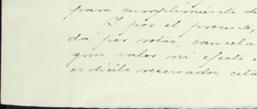 para cumplimiento de
Y por el presente,
da por rotas, cancela
gun valor ni efecto
midicilo reservados